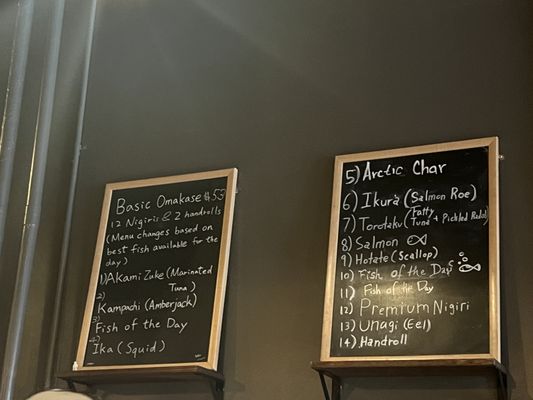 Basic Omakase $53
12 Nigiris & 2 handrolls
(Menu changes based on
best fish available for the
day)
1) Akami Zuke (Marinated
Tuna)
2)
Kampachi (Amberjack)
3)
Fish of the Day
4)
Ika (Squid)
5) Arctic Char
6) Ikura (Salmon Roe)
7) Torotaku (Fatty
Tuna + Pickled Radish)
8) Salmon
9) Hotate (Scallop)
10) Fish of the Day
11) Fish of the Day
12) Premium Nigiri
13) Unagi (Eel)
14) Handroll